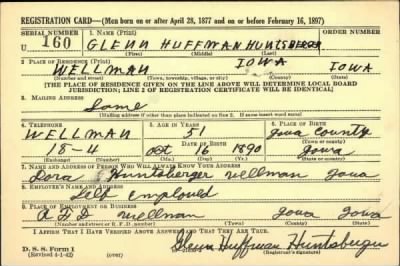 REGISTRATION CARD—(Men born on or after April 28, 1877 and on or before February 16, 1897)
SERIAL NUMBER 1. NAME (Print) ORDER NUMBER
U 160 GLENN HUFFMAN HUNTSBERGER
(First) (Middle) (Last)
2. PLACE OF RESIDENCE (Print)
WELLMAN IOWA IOWA
(Number and street) (Town, township, village, or city) (County) (State)
[THE PLACE OF RESIDENCE GIVEN ON THE LINE ABOVE WILL DETERMINE LOCAL BOARD
JURISDICTION; LINE 2 OF REGISTRATION CERTIFICATE WILL BE IDENTICAL]
3. MAILING ADDRESS
Same
[Mailing address if other than place indicated on line 2. If same insert word same]
4. TELEPHONE 5. AGE IN YEARS 6. PLACE OF BIRTH
WELLMAN 51 Iowa County
DATE OF BIRTH (Town or county)
18-4 Oct 16 1890 Iowa
(Exchange) (Number) (Mo.) (Day) (Yr.) (State or country)
7. NAME AND ADDRESS OF PERSON WHO WILL ALWAYS KNOW YOUR ADDRESS
Dora Huntsberger Wellman Iowa
8. EMPLOYER'S NAME AND ADDRESS
Self Employed
9. PLACE OF EMPLOYMENT OR BUSINESS
RFD Wellman Iowa Iowa
(Number and street or R. F. D. number) (Town) (County) (State)
I AFFIRM THAT I HAVE VERIFIED ABOVE ANSWERS AND THAT THEY ARE TRUE.
D. S. S. Form 1 Glenn Huffman Huntsberger
(Revised 4-1-42) (over) (Registrant's signature)